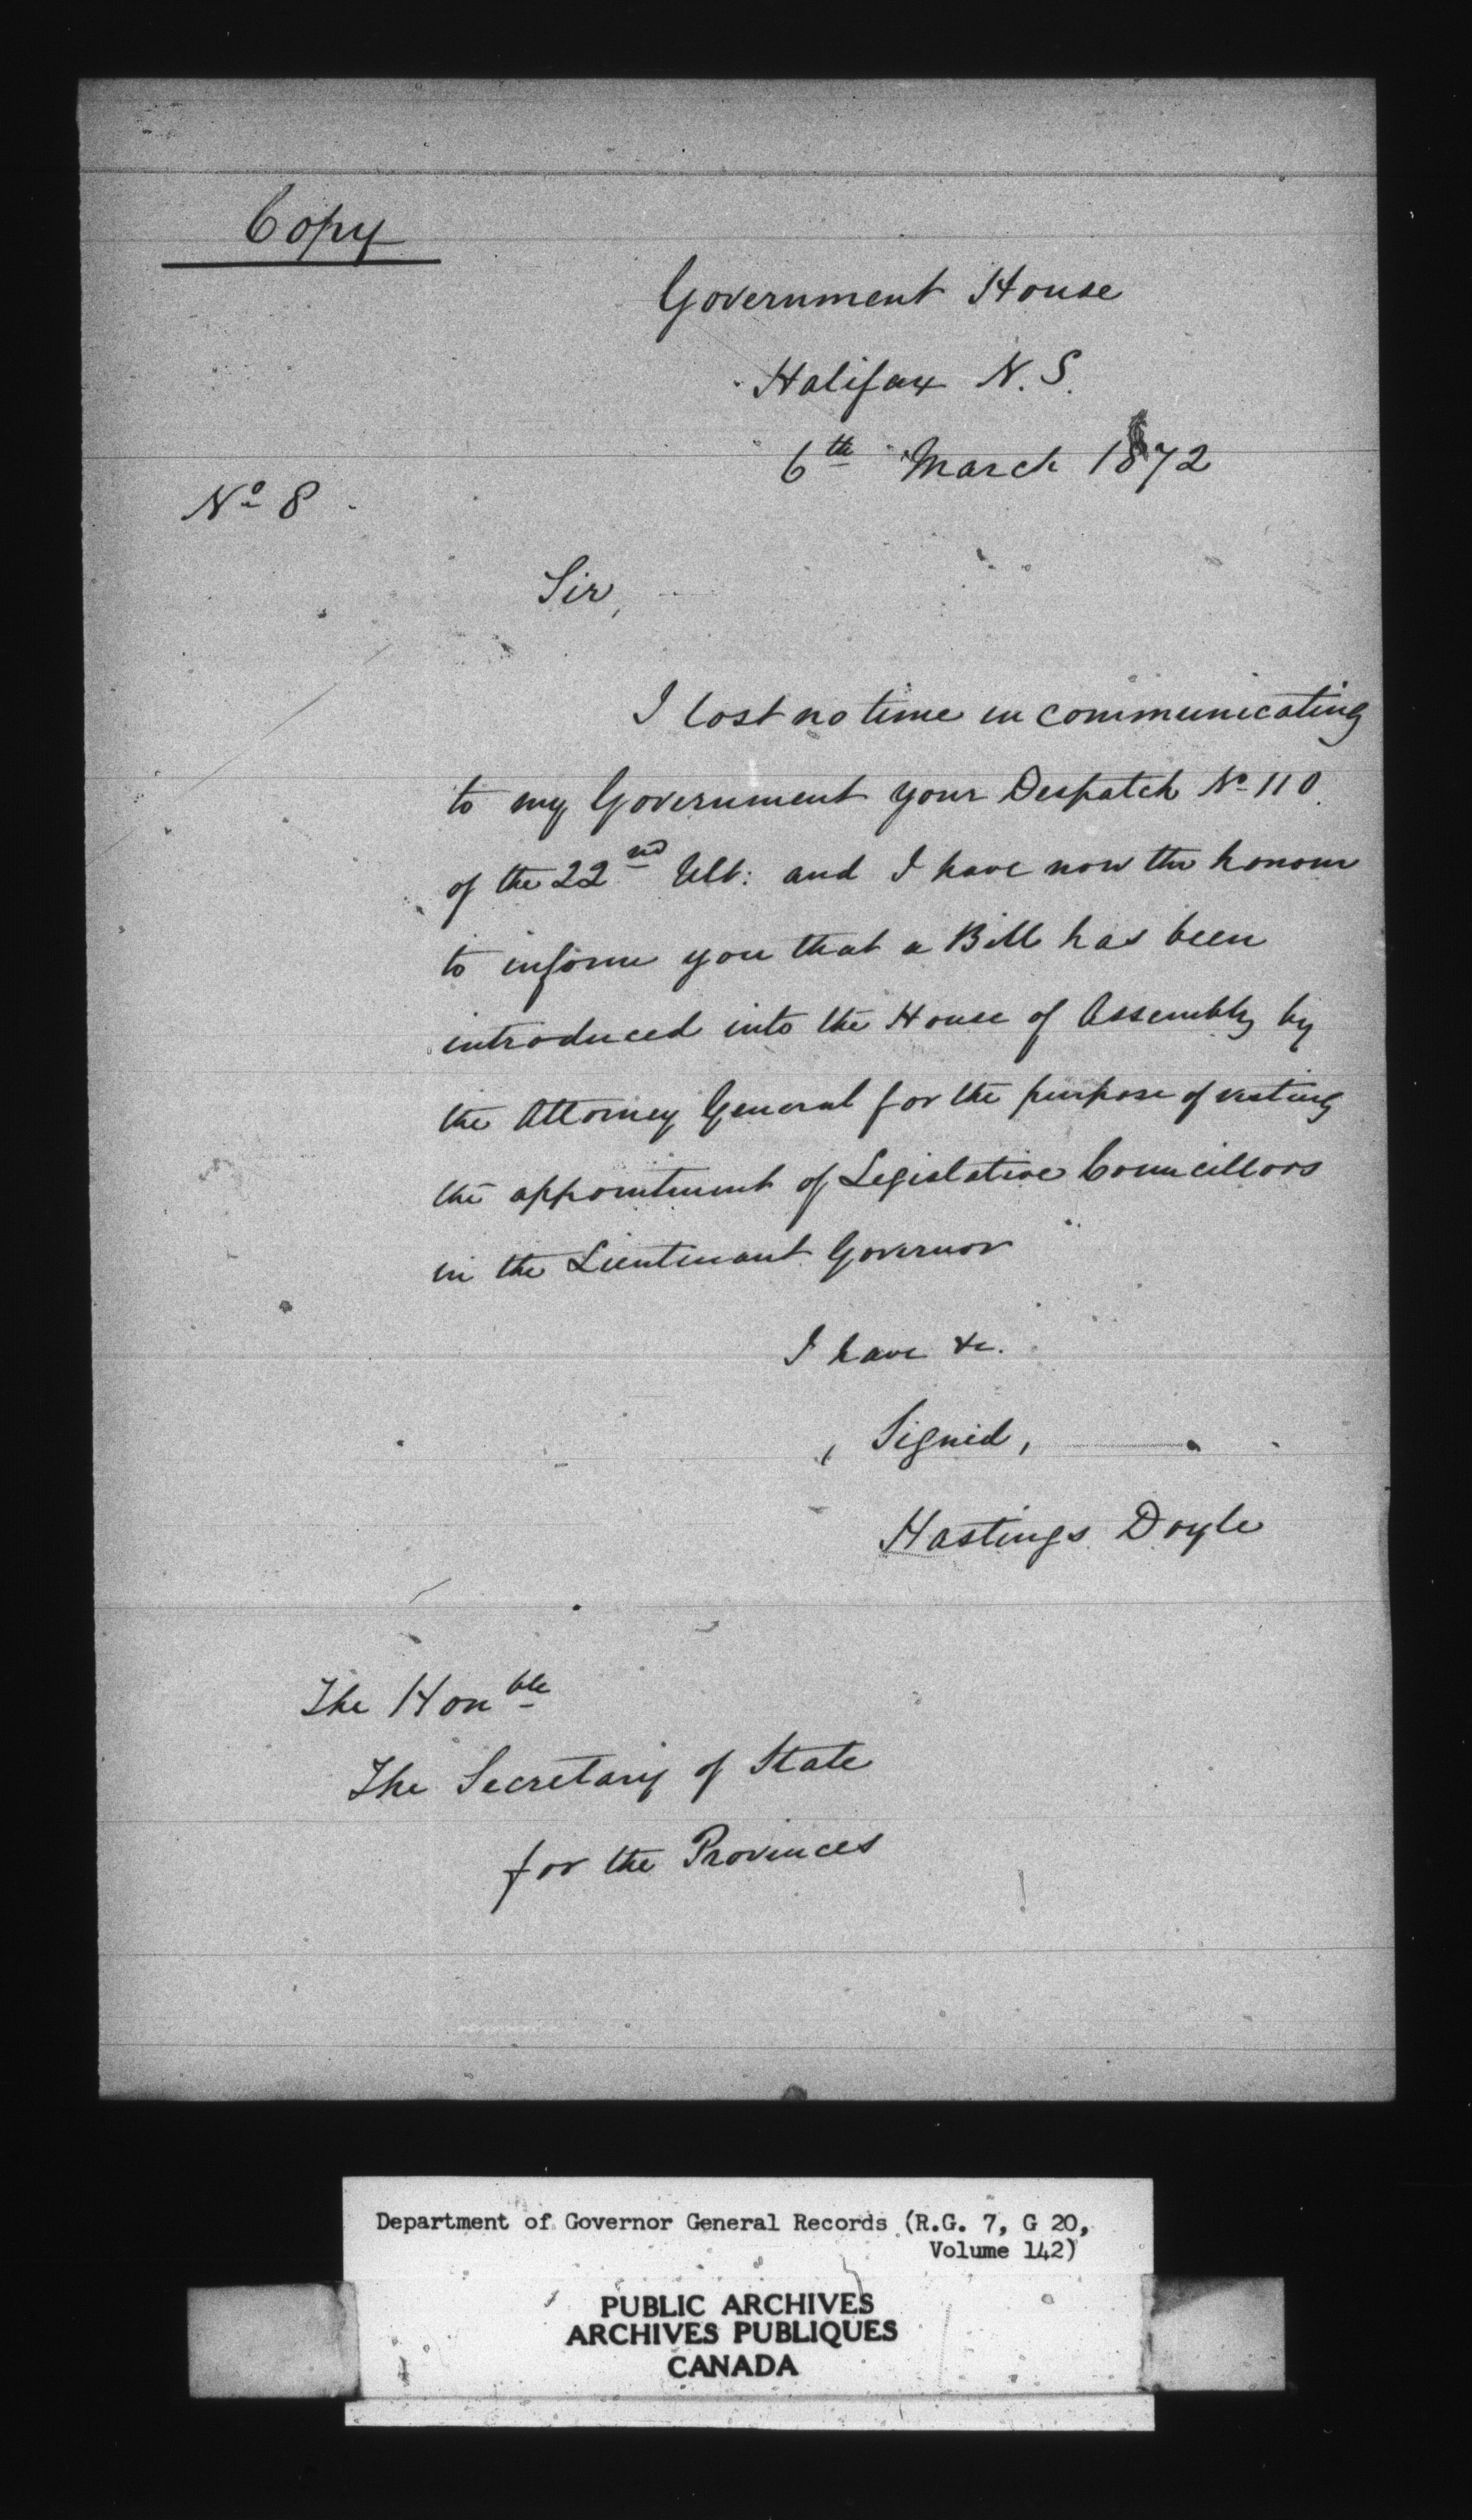 Copy
Government House
Halifax N.S.
6th March 1872
No 8
Sir,
I lost no time in communicating
to my Government your Despatch No 110
of the 22nd Ult: and I have now the honour
to inform you that a Bill has been
introduced into the House of Assembly by
the Attorney General for the purpose of vesting
the appointment of Legislative Councillors
in the Lieutenant Governor
I have &c.
(Signed,
Hastings Doyle
The Honble
The Secretary of State
for the Provinces
Department of Governor General Records (R.G. 7, G 20,
Volume 142)
PUBLIC ARCHIVES
ARCHIVES PUBLIQUES
CANADA